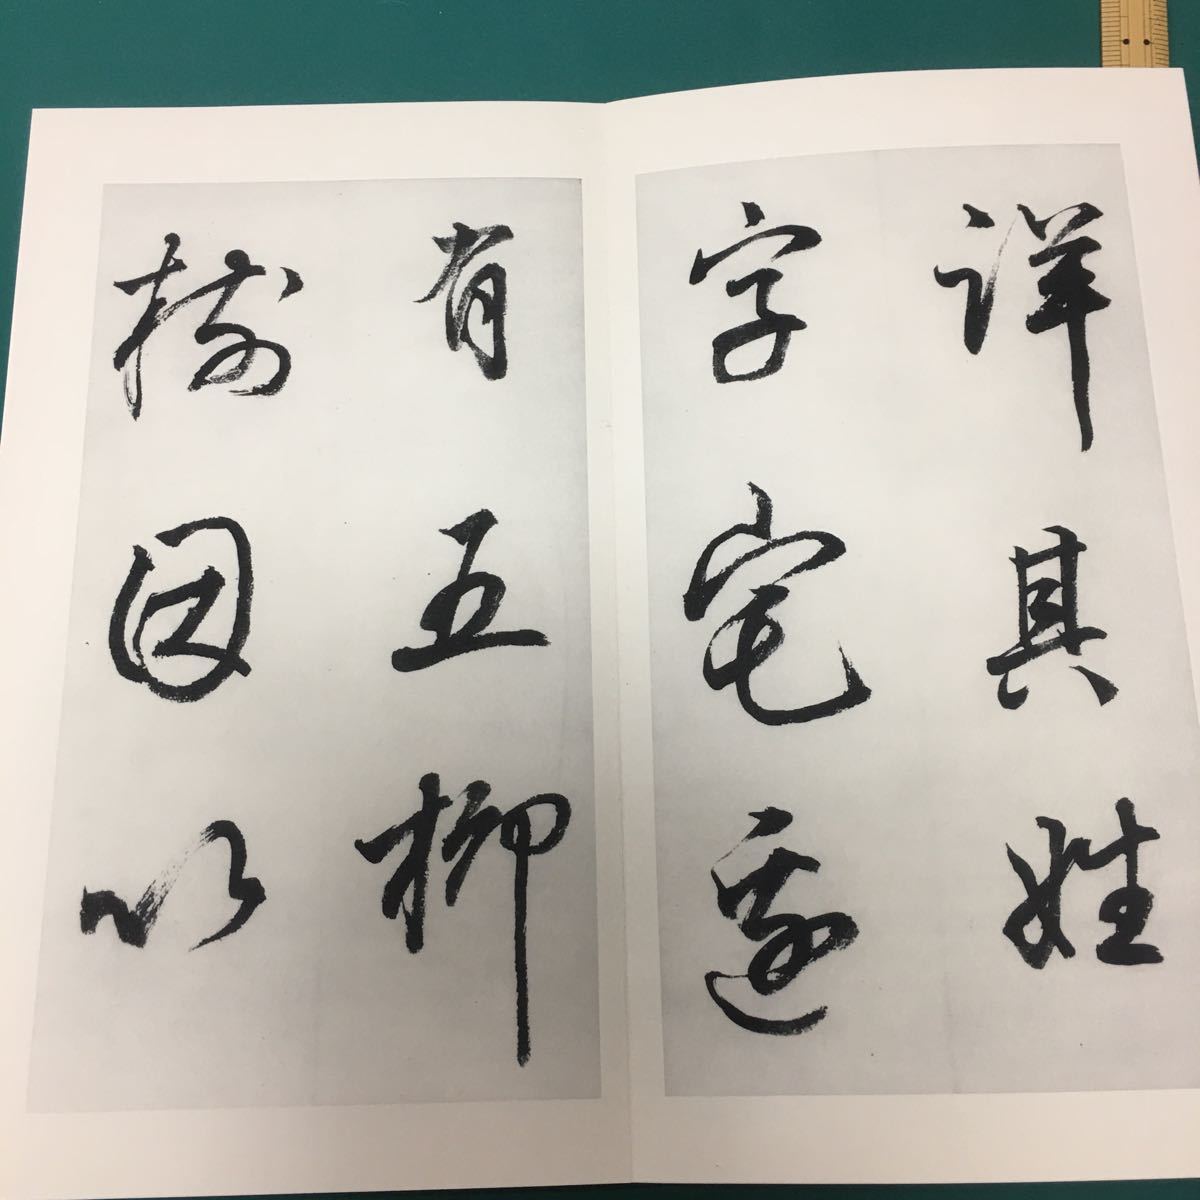 詳其姓
字宅邊
有五柳
樹因以